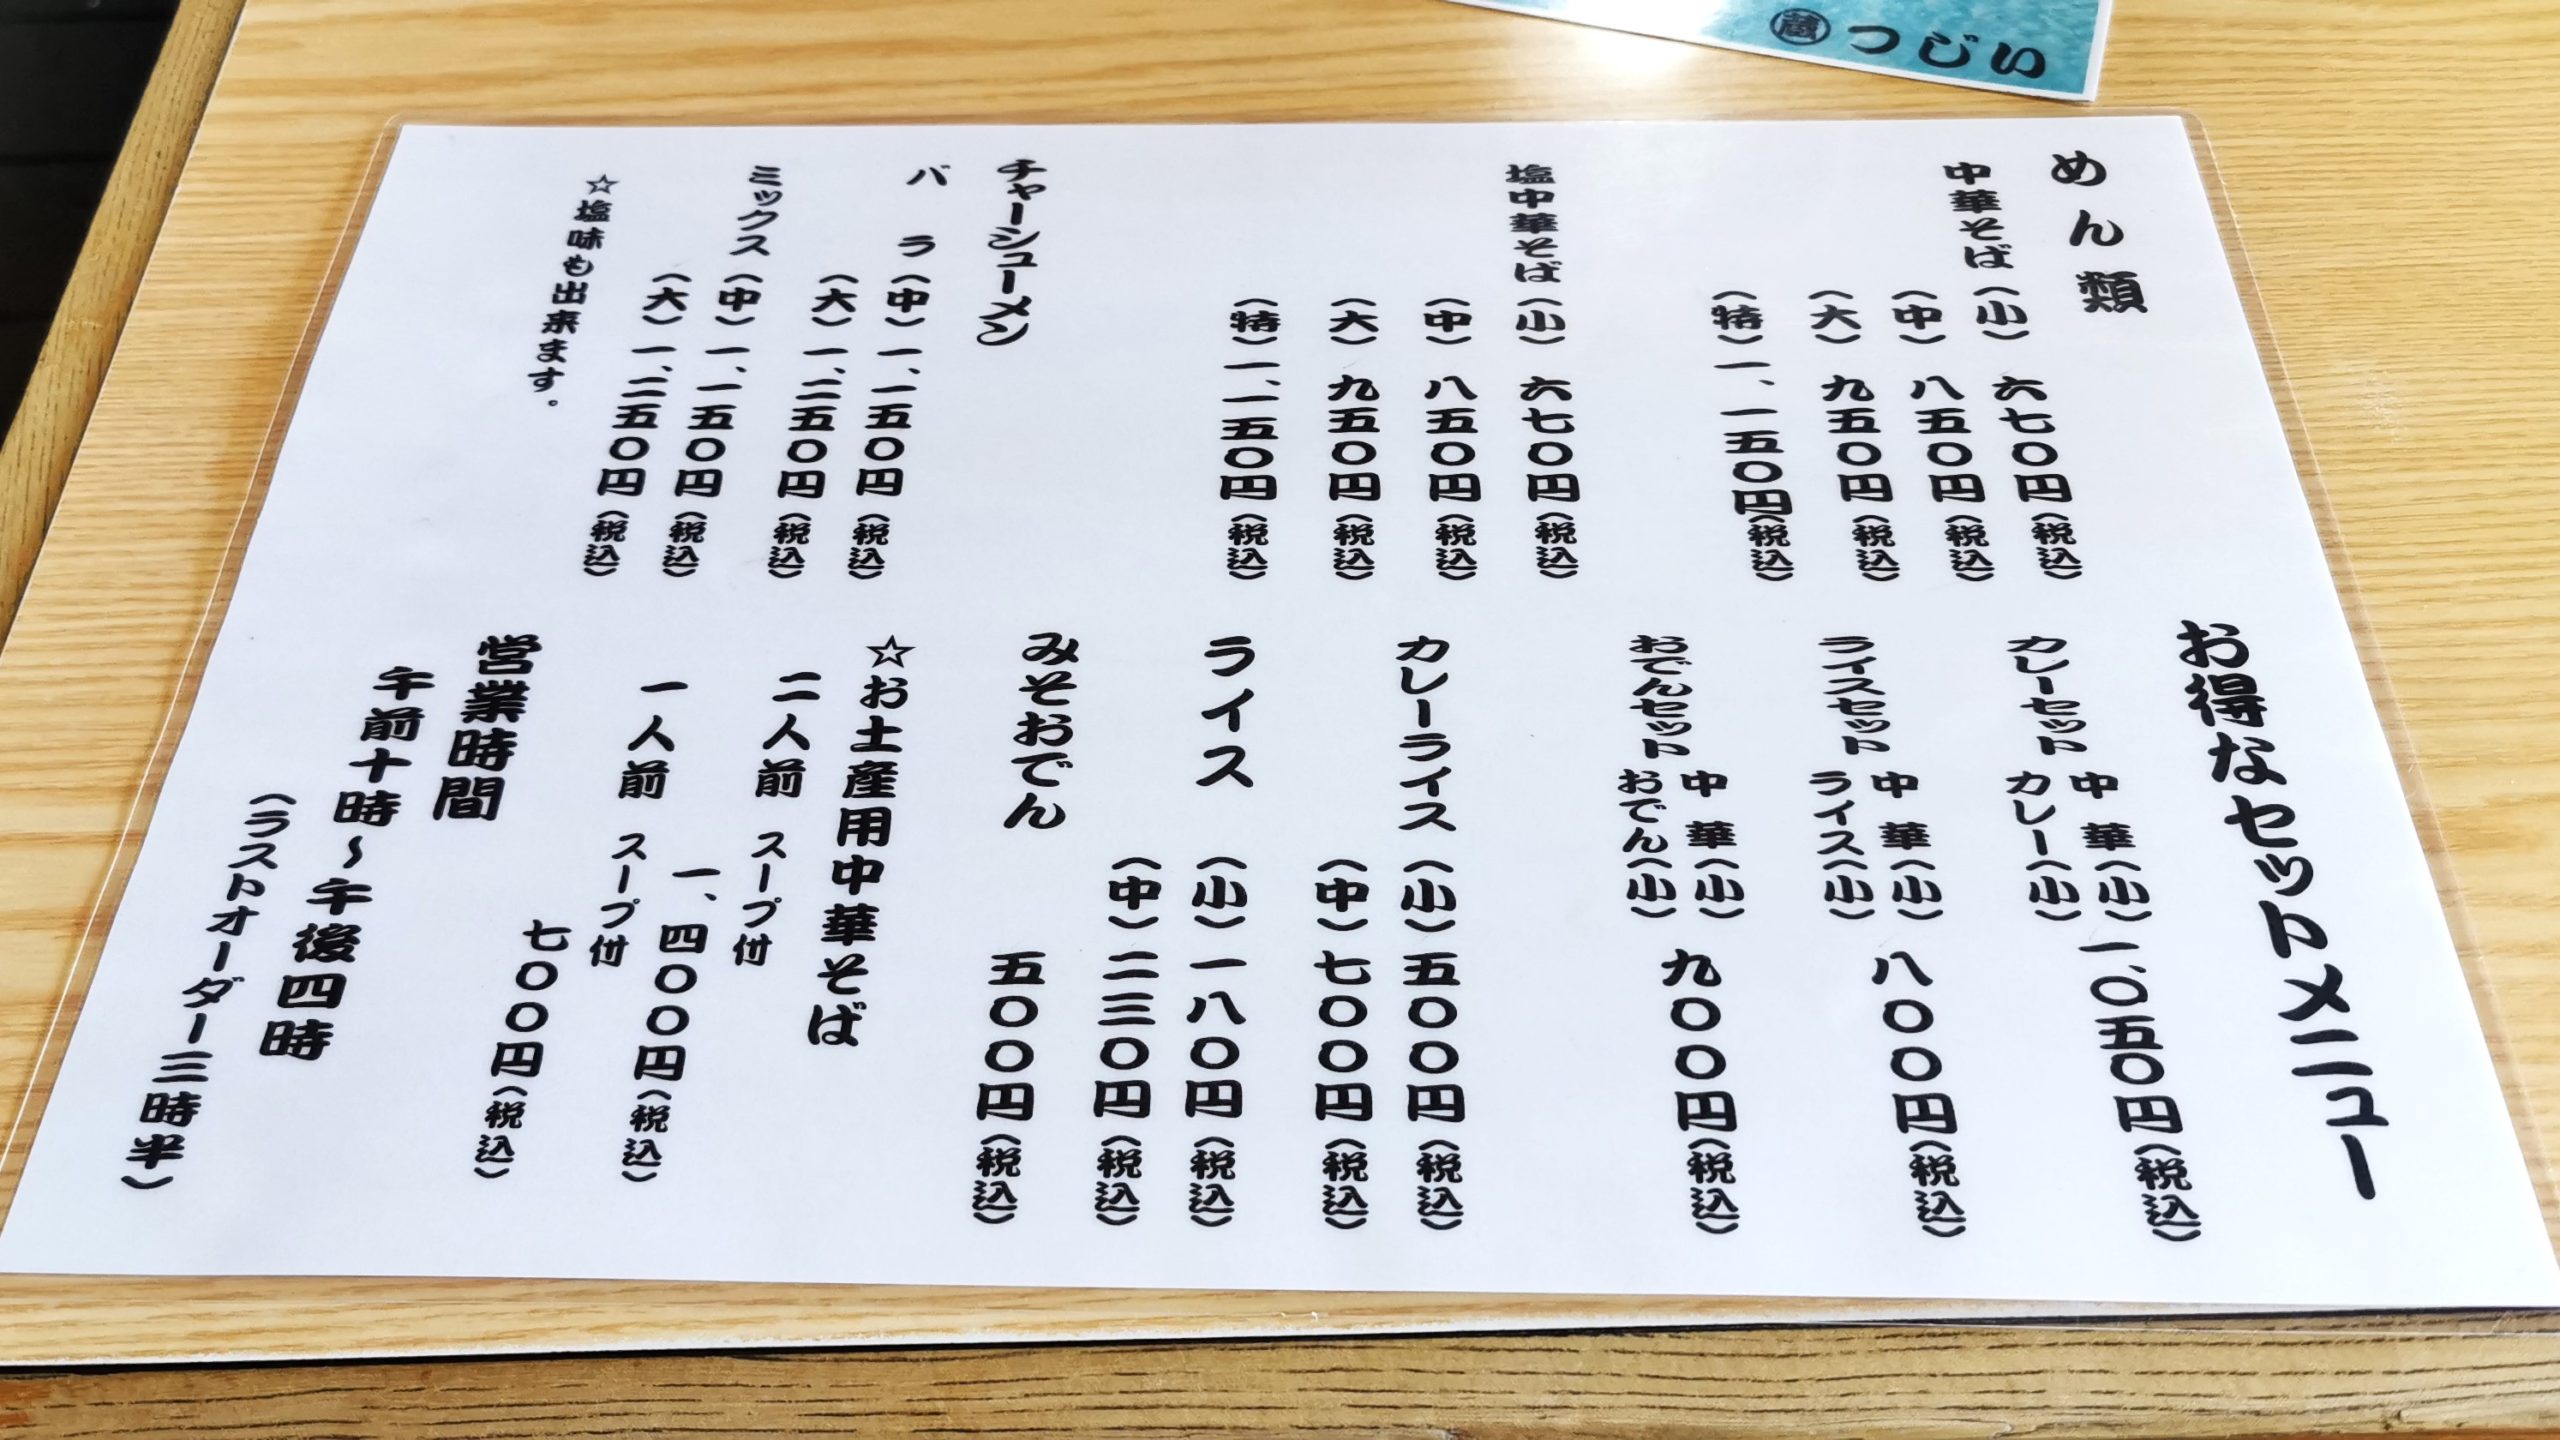 蔵つじい
めん類
中華そば（小）六七〇円（税込）
（中）八五〇円（税込）
（大）九五〇円（税込）
（特）一、一五〇円（税込）
塩中華そば（小）六七〇円（税込）
（中）八五〇円（税込）
（大）九五〇円（税込）
（特）一、一五〇円（税込）
チャーシューメン
バラ（中）一、一五〇円（税込）
（大）一、二五〇円（税込）
ミックス（中）一、一五〇円（税込）
（大）一、二五〇円（税込）
☆塩味も出来ます。
お得なセットメニュー
カレーセット 中華（小）一、〇五〇円（税込）
カレー（小）
ライスセット 中華（小）八〇〇円（税込）
ライス（小）
おでんセット 中華（小）九〇〇円（税込）
おでん（小）
カレーライス（小）五〇〇円（税込）
（中）七〇〇円（税込）
ライス（小）一八〇円（税込）
（中）二三〇円（税込）
みそおでん 五〇〇円（税込）
☆お土産用中華そば
二人前 スープ付
一、四〇〇円（税込）
一人前 スープ付
七〇〇円（税込）
営業時間
午前十時～午後四時
（ラストオーダー三時半）